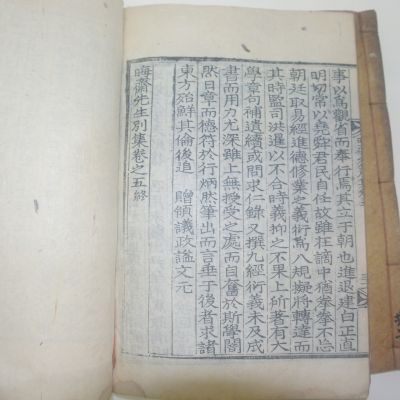 事以爲觀省而奉行焉其立于朝也進退建白正直
明切常以堯舜君民自任故雖在謫中猶拳拳不忘
朝廷取易經進德修業之義衍爲八規擬將轉達而
其時監司洪暹以不合時義抑之不果上所著有大
學章句補遺續或問求仁錄又撰九經衍義未及成
書而用力尤深雖上無授受之處而自奮於斯學闇
然日章而德符於行炳然筆出而言垂于後者求諸
東方殆鮮其倫後追 贈領議政諡文元
晦齋先生別集卷之五終